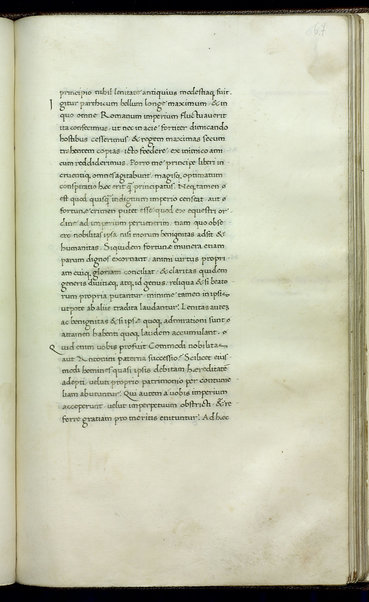 167
principio nihil lenitate antiquius modestiaq; fuit
I gitur parthicum bellum longe maximum & in
quo omne Romanum imperium fluctuauerit
ita confecimus ut nec in acie fortiter dimicando
hostibus cesserimus & regem maximas secum
trahentem copias icto foedere ex inimico ami
cum reddiderimus. Porro me principe liberi in
cruentiq; omnes agitabunt magisq; optimatum
conspiratio hoc erit q; principatus. Neq; tamen ē
est quod quisq; indignum imperio censeat aut
fortunae crimen putet esse quod ex equestri or
dine ad imperium peruenerim nam quo obse
cro nobilitas ipsa nisi morum benignitas adsit &
humanitas. Siquidem fortunae munera etiam
parum dignos exornant animi uirtus propri
am cuiq; gloriam conciliat & claritas quidem
generis diuitieq; atq; id genus reliqua & si beato
rum propria putantur minime tamen in ipsis
utpote ab aliis tradita laudantur. Lenitas autem
ac benignitas & si ipsae quoq; admirationi sunt
attamen habenti quoq; laudem accumulant.
Q uid enim uobis profuit Commodi nobilitas
aut Antonini paterna successio? Scilicet eius
modi homines quasi ipsis debitam haereditatē
adepti uelut proprio patrimonio per contume
liam abutuntur. Qui autem a uobis imperium
acceperunt uelut in perpetuum obstricti & re
ferre gratiam pro meritis enituntur. Ad hoc